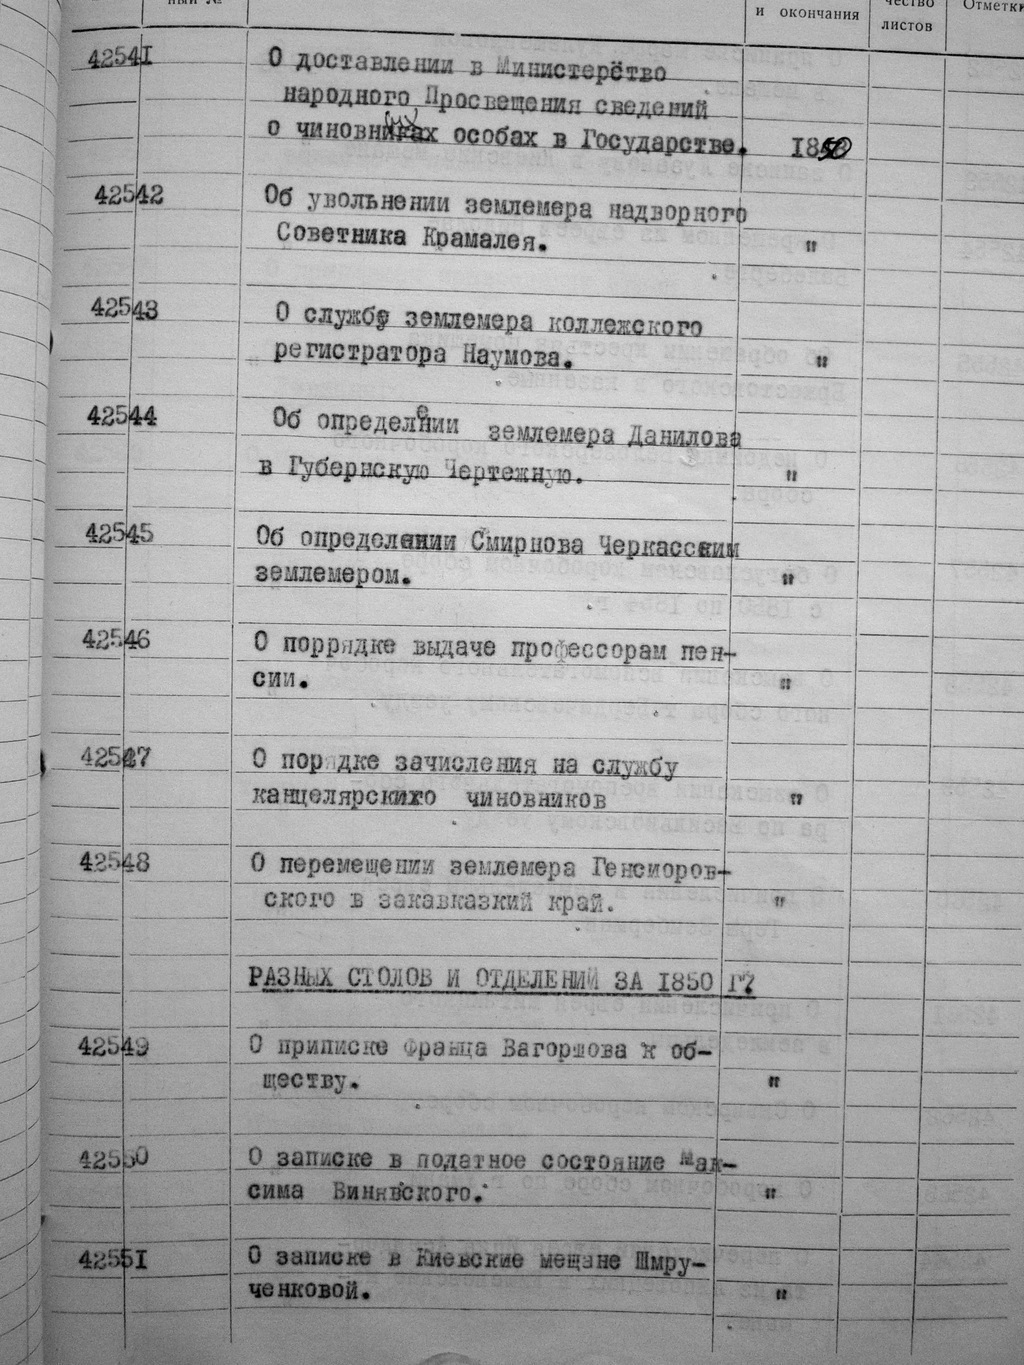 ный №
и окончания
чество
листов
Отметки
42541 О доставлении в Министерство
народного Просвещения сведений
о чиновных особах в Государстве. 1850
42542 Об увольнении землемера надворного
Советника Крамалея. "
42543 О службе землемера коллежского
регистратора Наумова. "
42544 Об определении землемера Данилова
в Губернскую Чертежную. "
42545 Об определении Смирнова Черкасским
землемером. "
42546 О поррядке выдаче профессорам пен-
сии. "
42547 О пор дке зачисления на службу
канцелярского чиновников "
42548 О перемещении землемера Генсиоров-
ского в закавказкий край. "
РАЗНЫХ СТОЛОВ И ОТДЕЛЕНИЙ ЗА 1850 г?
42549 О приписке Франца Вагоршова к об-
ществу. "
42550 О записке в податное состояние Мак-
сима Винявского. "
42551 О записке в Киевские мещане Шмру-
ченковой. "